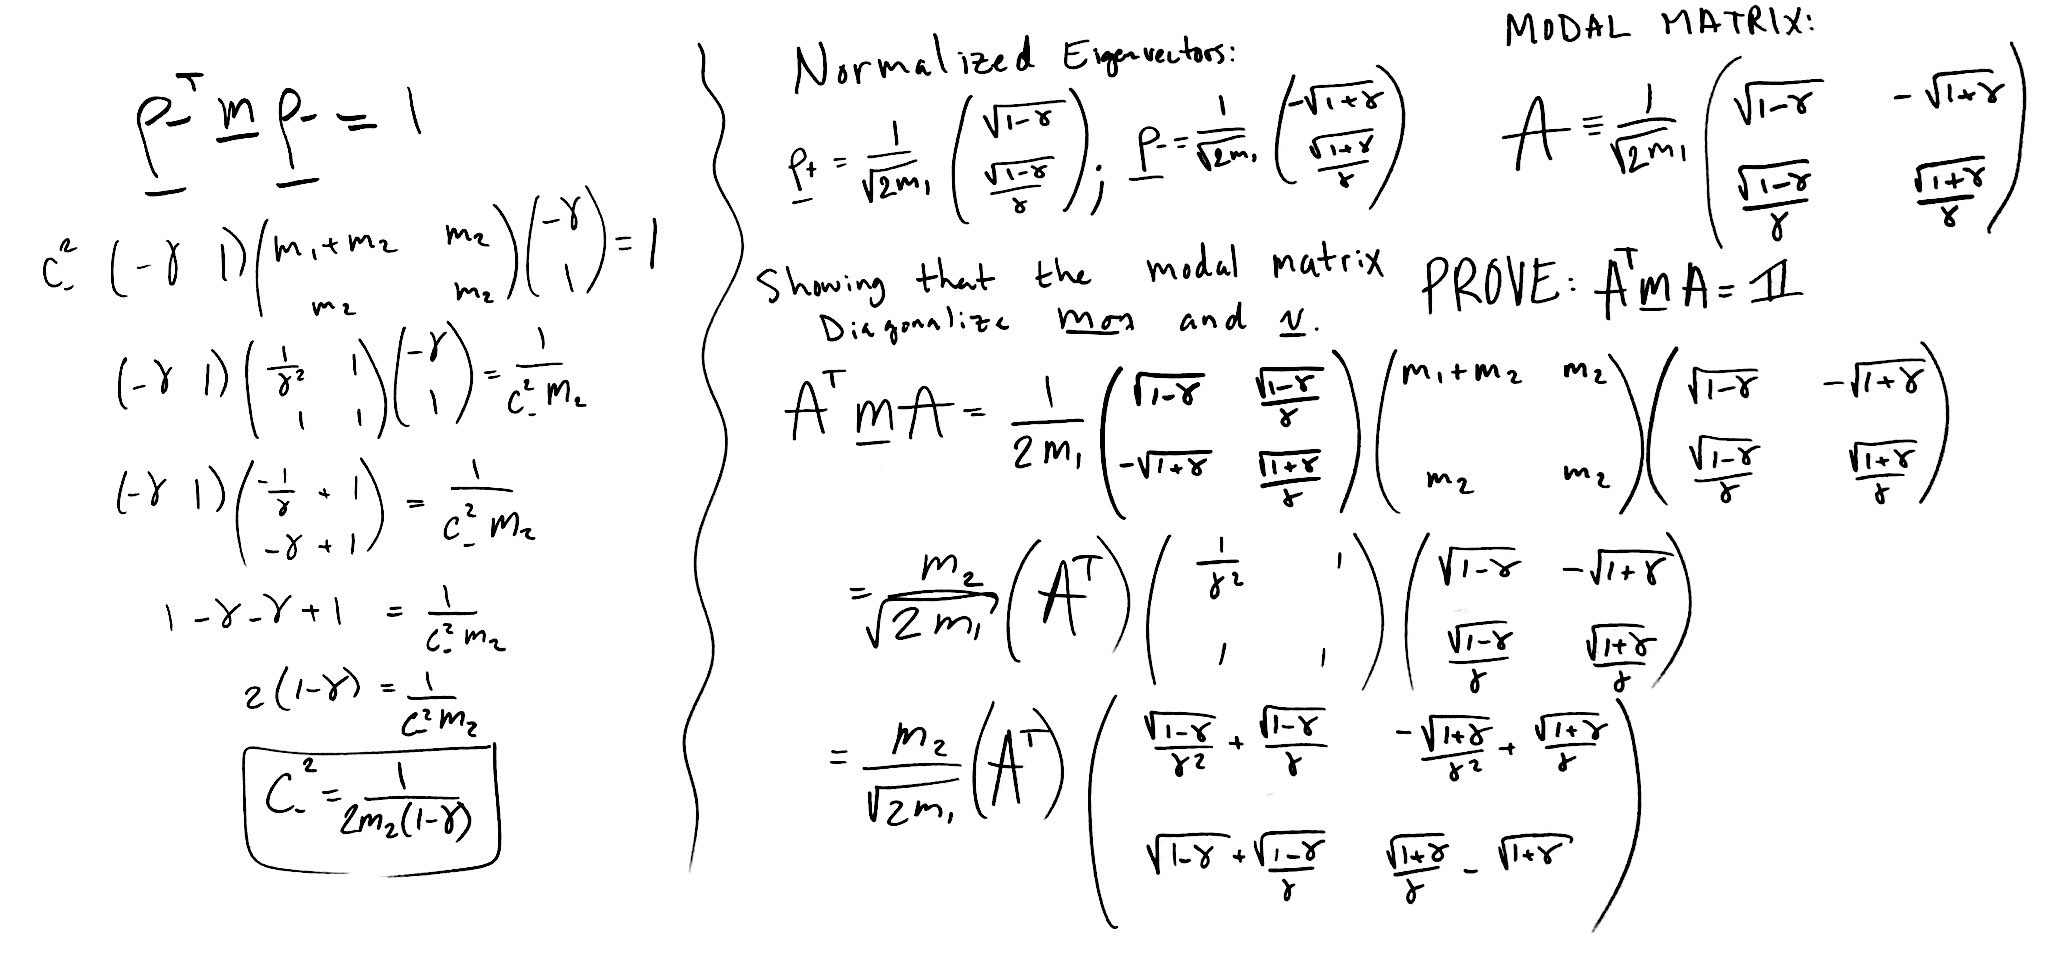 ρ_-^T m ρ_- = 1
C_-^2 (-γ 1) (m₁+m₂ m₂ ; m₂ m₂) (-γ ; 1) = 1
(-γ 1) (1/γ² 1 ; 1 1) (-γ ; 1) = 1/(C_-^2 m₂)
(-γ 1) (-1/γ + 1 ; -γ + 1) = 1/(C_-^2 m₂)
1 - γ - γ + 1 = 1/(C_-^2 m₂)
2(1-γ) = 1/(C_-^2 m₂)
C_-^2 = 1/(2m₂(1-γ))
Normalized Eigenvectors:
ρ_+ = 1/√(2m₁) (√(1-γ) ; √(1-γ)/γ) ; ρ_- = 1/√(2m₁) (-√(1+γ) ; √(1+γ)/γ)
MODAL MATRIX:
A ≡ 1/√(2m₁) (√(1-γ) -√(1+γ) ; √(1-γ)/γ √(1+γ)/γ)
Showing that the modal matrix
Diagonalize and v.
PROVE: A^T m A = 𝟙
A^T m A = 1/(2m₁) (√(1-γ) √(1-γ)/γ ; -√(1+γ) √(1+γ)/γ) (m₁+m₂ m₂ ; m₂ m₂) (√(1-γ) -√(1+γ) ; √(1-γ)/γ √(1+γ)/γ)
= m₂/√(2m₁) (A^T) (1/γ² 1 ; 1 1) (√(1-γ) -√(1+γ) ; √(1-γ)/γ √(1+γ)/γ)
= m₂/√(2m₁) (A^T) (√(1-γ)/γ² + √(1-γ)/γ -√(1+γ)/γ² + √(1+γ)/γ ; √(1-γ) + √(1-γ)/γ √(1+γ)/γ - √(1+γ))